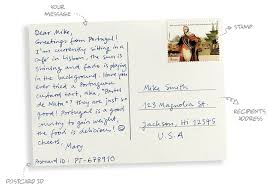 YOUR
MESSAGE
Dear Mike,
Greetings from Portugal!
I'm currently sitting in a
cafe in Lisbon, the sun is
shining and fado is playing
in the background. Have you
ever tried a Portuguese
custard tart, aka, "Pastel
de Nata"? They are just so
good! Portugal is a good
country to gain weight,
the food is delicious!
cheers,
Mary
Postcard ID: PT-678910
STAMP
Mike Smith
123 Magnolia St
Jackson, HI 12345
U.S.A
RECIPIENTS
ADDRESS
POSTCARD ID